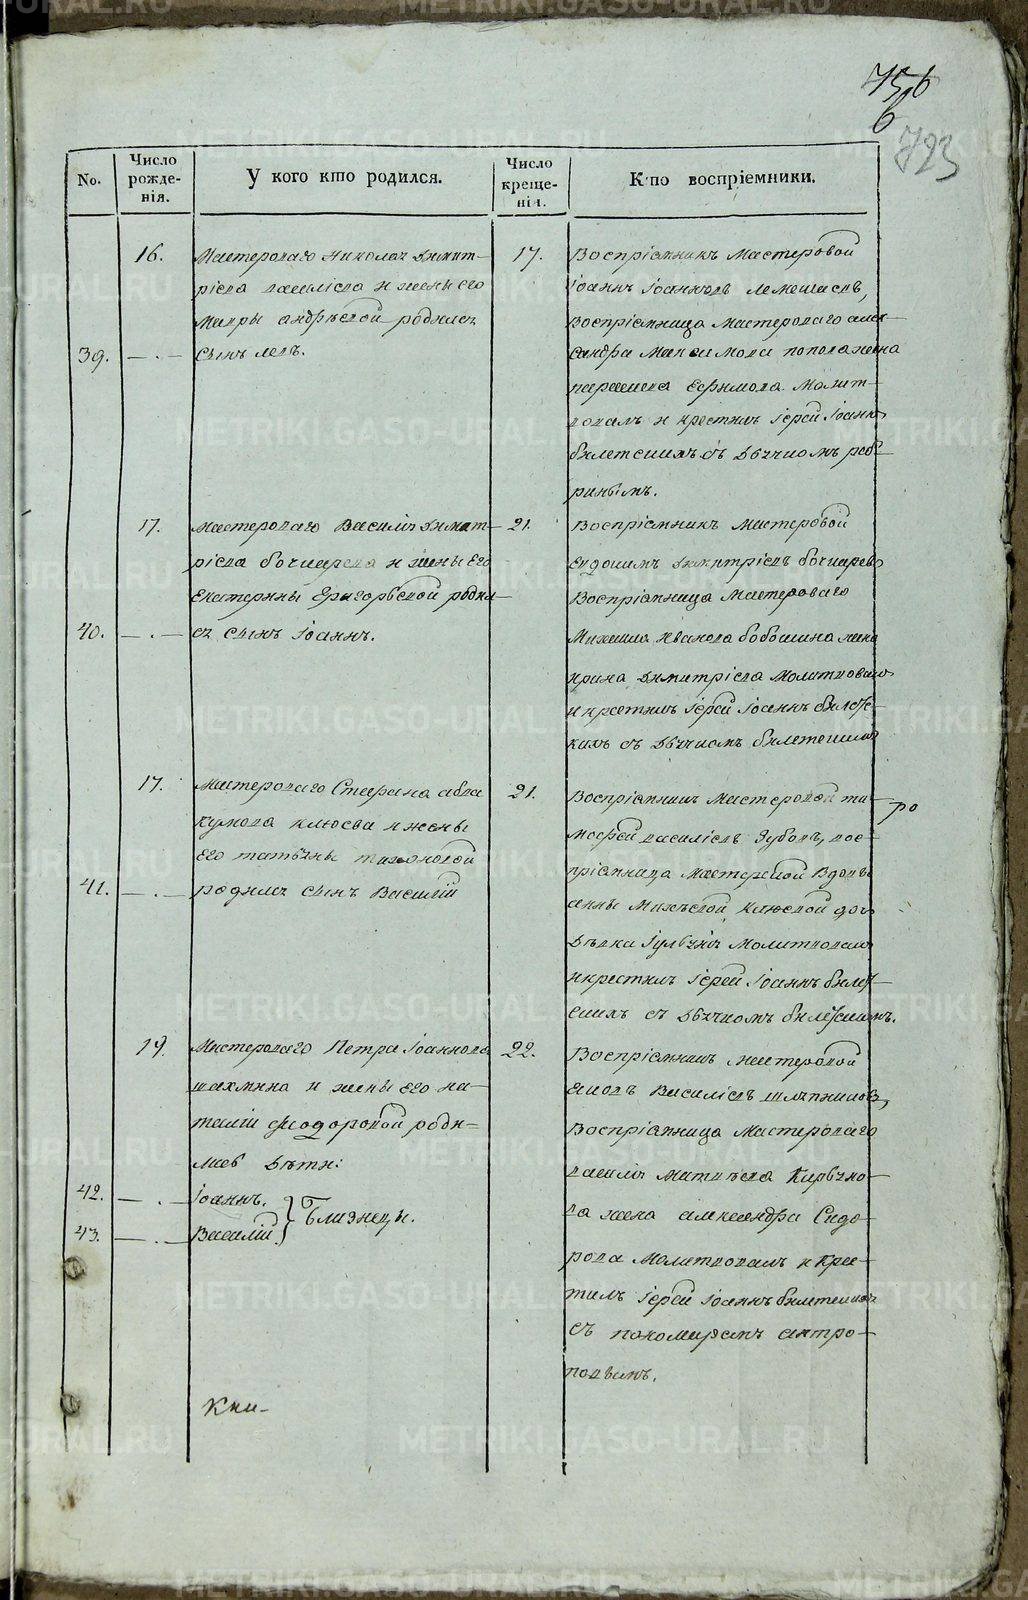 756
6
723
No.
Число рожденія.
У кого кто родился.
Число крещенія.
Кто воспріемники.
16.
Мастероваго Николая Димит-
ріева Василіева и жены его
Мавры Андрѣевой родился
39. — . — сынъ Левъ.
17.
Воспріемникъ Мастеровой
Іоаннъ Іоанновъ
Воспріемница Мастероваго Алек-
сандра Максимова жена
Ефимова Молит-
вовалъ и крестилъ Іерей Іоаннъ
съ Дьячкомъ
17.
Мастероваго Василія Димит-
ріева Бочкарева и жены его
Екатерины Григорьевой роди-
40. — . — ся сынъ Іоаннъ.
21.
Воспріемникъ Мастеровой
Евдокимъ Димитріевъ Бочкаревъ
Воспріемница Мастероваго
Михаила Иванова жена
Ирина Димитріева Молитвовалъ
и крестилъ Іерей Іоаннъ
съ Дьячкомъ
17.
Мастероваго Стефана Авва-
кумова Клюева и жены
его Татьяны
41. — . — родился сынъ Василій
21.
Воспріемникъ Мастеровой Ти-
мофей Василіевъ Зубовъ, вос-
пріемница Мастерской Вдовы
Анны Клюевой дочь
Дѣвка Молитвовалъ
и крестилъ Іерей Іоаннъ
съ Дьячкомъ
ро
19.
Мастероваго Петра Іоаннова
и жены его На-
таліи Феодоровой роди-
лись Дѣти:
42. — . — Іоаннъ.
43. — . — Василій } Близнецы.
22.
Воспріемникъ Мастеровой
Василіевъ
Воспріемница Мастероваго
Василія Матвѣева
жена Александра Сидо-
рова Молитвовалъ и Крес-
тилъ Іерей Іоаннъ
съ пономаремъ Антро-
повымъ.
METRIKI.GASO-URAL.RU